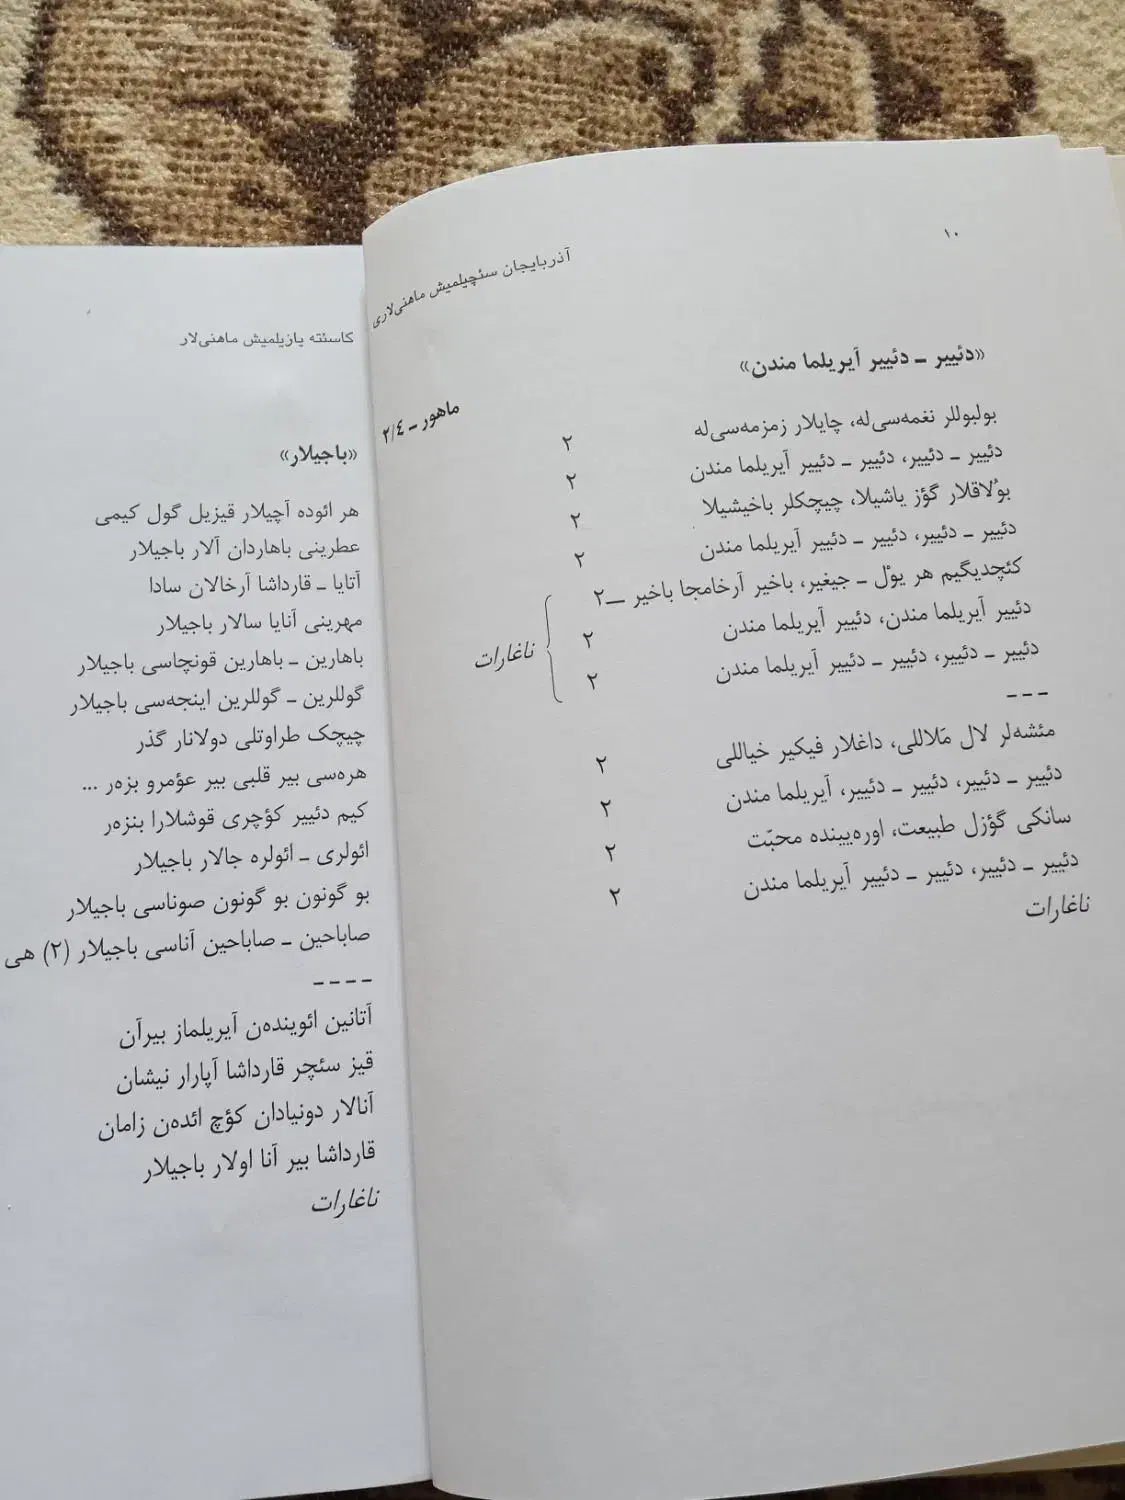 ۱۰
آذربایجان سئچیلمیش ماهنی‌لاری
«دئییر ـ دئییر آیریلما مندن»
ماهور ـ ۲/٤
بولبوللر نغمه‌سی‌له، چایلار زمزمه‌سی‌له ۲
دئییر ـ دئییر، دئییر ـ دئییر آیریلما مندن ۲
بوْلاقلار گؤز یاشیلا، چیچکلر باخیشیلا ۲
دئییر ـ دئییر، دئییر ـ دئییر آیریلما مندن ۲
کئچدیگیم هر یوْل ـ جیغیر، باخیر آرخامجا باخیر ــ۲
دئییر آیریلما مندن، دئییر آیریلما مندن ۲
دئییر ـ دئییر، دئییر ـ دئییر آیریلما مندن ۲
ناغارات
---
مئشه‌لر لال مَلاللی، داغلار فیکیر خیاللی ۲
دئییر ـ دئییر، دئییر ـ دئییر، آیریلما مندن ۲
سانکی گؤزل طبیعت، اوره‌یینده محبّت ۲
دئییر ـ دئییر، دئییر ـ دئییر آیریلما مندن ۲
ناغارات
کاسئته یازیلمیش ماهنی‌لار
«باجیلار»
هر ائوده آچیلار قیزیل گول کیمی
عطرینی باهاردان آلار باجیلار
آتایا ـ قارداشا آرخالان سادا
مهرینی آنایا سالار باجیلار
باهارین ـ باهارین قونچاسی باجیلار
گوللرین ـ گوللرین اینجه‌سی باجیلار
چیچک طراوتلی دولانار گذر
هره‌سی بیر قلبی بیر عؤمرو بزه‌ر ...
کیم دئییر کؤچری قوشلارا بنزه‌ر
ائولری ـ ائولره جالار باجیلار
بو گونون بو گونون صوناسی باجیلار
صاباحین ـ صاباحین آناسی باجیلار (۲) هی
----
آتانین ائوینده‌ن آیریلماز بیرآن
قیز سئچر قارداشا آپارار نیشان
آنالار دونیادان کؤچ ائده‌ن زامان
قارداشا بیر آنا اولار باجیلار
ناغارات